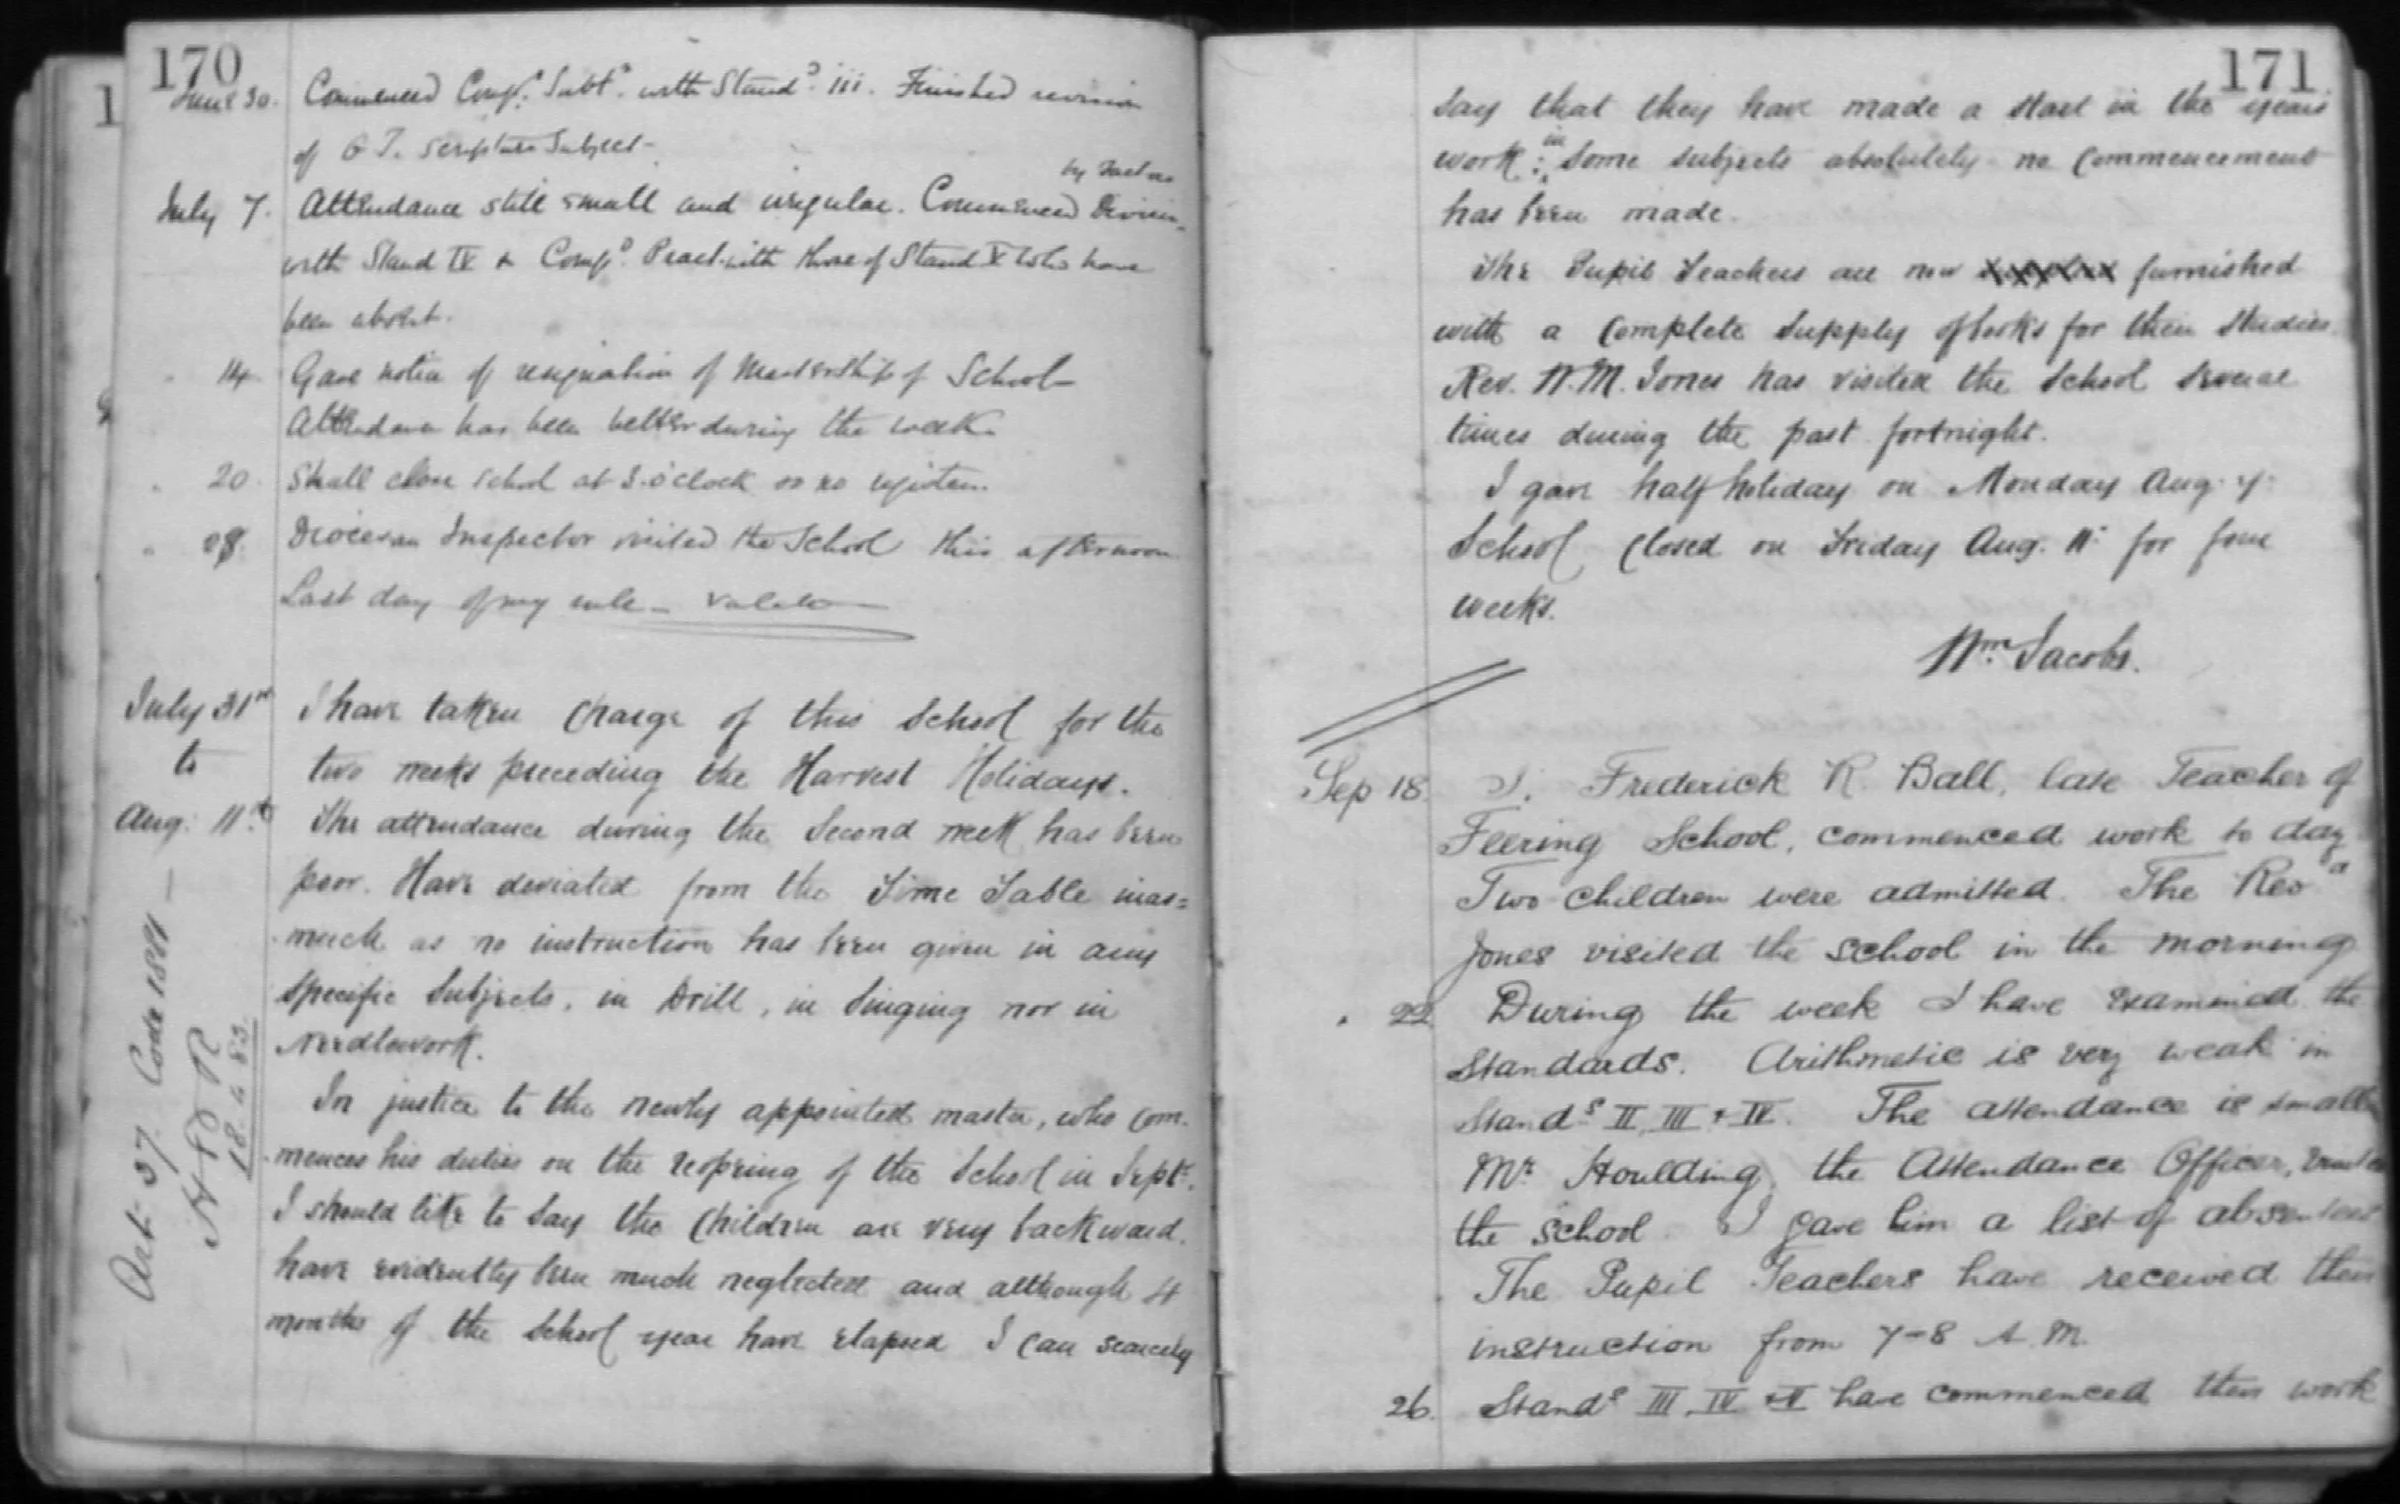 170
June 30. Commenced Comp.d Subt.n with Stand.d iii. Finished revision
of O T. Scripture Subject-
by Factors
July 7. Attendance still small and irregular. Commenced Division
with Stand IV & Comp.d Pract. with those of Stand V who have
been absent.
" 14 Gave notice of resignation of Mastership of School-
Attendance has been better during the week.
" 20. Shall close school at 3.o'clock
" 28. Diocesan Inspector visited the School this afternoon.
Last day of my rule - Valete
July 31st I have taken charge of this School for the
to two weeks preceding the Harvest Holidays.
Aug: 11th The attendance during the second week has been
poor. Have deviated from the Time Table inas=
much as no instruction has been given in any
Specific Subjects, in Drill, in Singing nor in
Needlework.
In justice to the newly appointed master, who com-
mences his duties on the reopening of the School in Sept.
I should like to say the children are very backward.
have evidently been much neglected and although 4
months of the School year have elapsed I can scarcely
Art: 37. Code 1881 —
18.4.83.
171
say that they have made a start in the years
work: in some subjects absolutely no commencement
has been made.
The Pupil Teachers are now furnished
with a complete supply of books for their studies.
Rev. W. M. Jones has visited the School several
times during the past fortnight.
I gave half holiday on Monday Aug. 7.
School closed on Friday Aug. 11th for four
weeks.
Wm. Jacobs.
Sep 18. I. Frederick R. Ball, late Teacher of
Feering School, commenced work to day
Two children were admitted. The Revd
Jones visited the school in the morning
" 22 During the week I have examined the
Standards. Arithmetic is very weak in
Stands II, III & IV. The attendance is smaller
Mr Houlding, the Attendance Officer, visited
the school. I gave him a list of absentees
The Pupil Teachers have received their
instruction from 7-8 A.M.
26. Stands III, IV & V have commenced their work